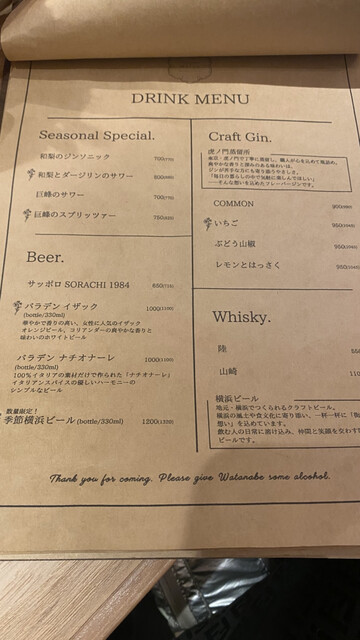 DRINK MENU
Seasonal Special.
和梨のジンソニック 700(770)
和梨とダージリンのサワー 800(880)
巨峰のサワー 700(770)
巨峰のスプリッツァー 750(825)
Beer.
サッポロ SORACHI 1984 650(715)
バラデン イザック 1000(1100)
(bottle/330ml)
華やかで香りの高い、女性に人気のイザック
オレンジピール、コリアンダーの爽やかな香りと
味わいのホワイトビール
バラデン ナチオナーレ 1000(1100)
(bottle/330ml)
100%イタリアの素材だけで作られた「ナチオナーレ」
イタリアンスパイスの優しいハーモニーの
シンプルなビール
数量限定!
季節横浜ビール (bottle/330ml) 1200(1320)
Craft Gin.
虎ノ門蒸留所
東京・虎ノ門で丁寧に蒸留し、職人が心を込めて瓶詰め。
爽やかな香りと深みのある味わいは、
ジンが苦手な方にも寄り添うやさしさ。
「毎日の暮らしの中で気軽に楽しんでほしい」
ーそんな想いを込めたフレーバージンです。
COMMON 900
いちご 950
ぶどう山椒 950
レモンとはっさく 950
Whisky.
陸
山崎
横浜ビール
地元・横浜でつくられるクラフトビール。
横浜の風土や食文化に寄り添い、一杯一杯に
想い」を込めています。
飲む人の日常に溶け込み、仲間と笑顔を交わす
ビールです。
Thank you for coming. Please give Watanabe some alcohol.